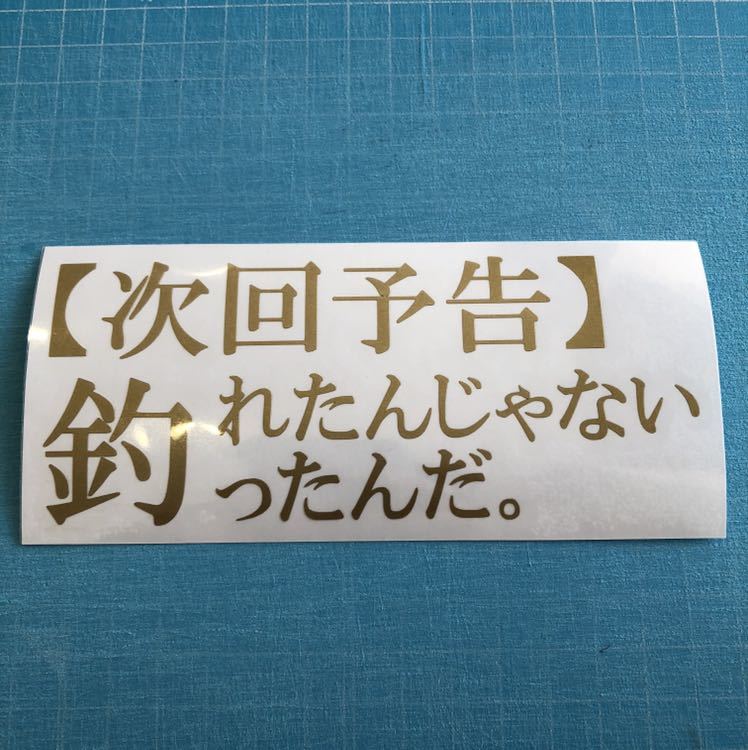 【次回予告】
釣れたんじゃない
ったんだ。